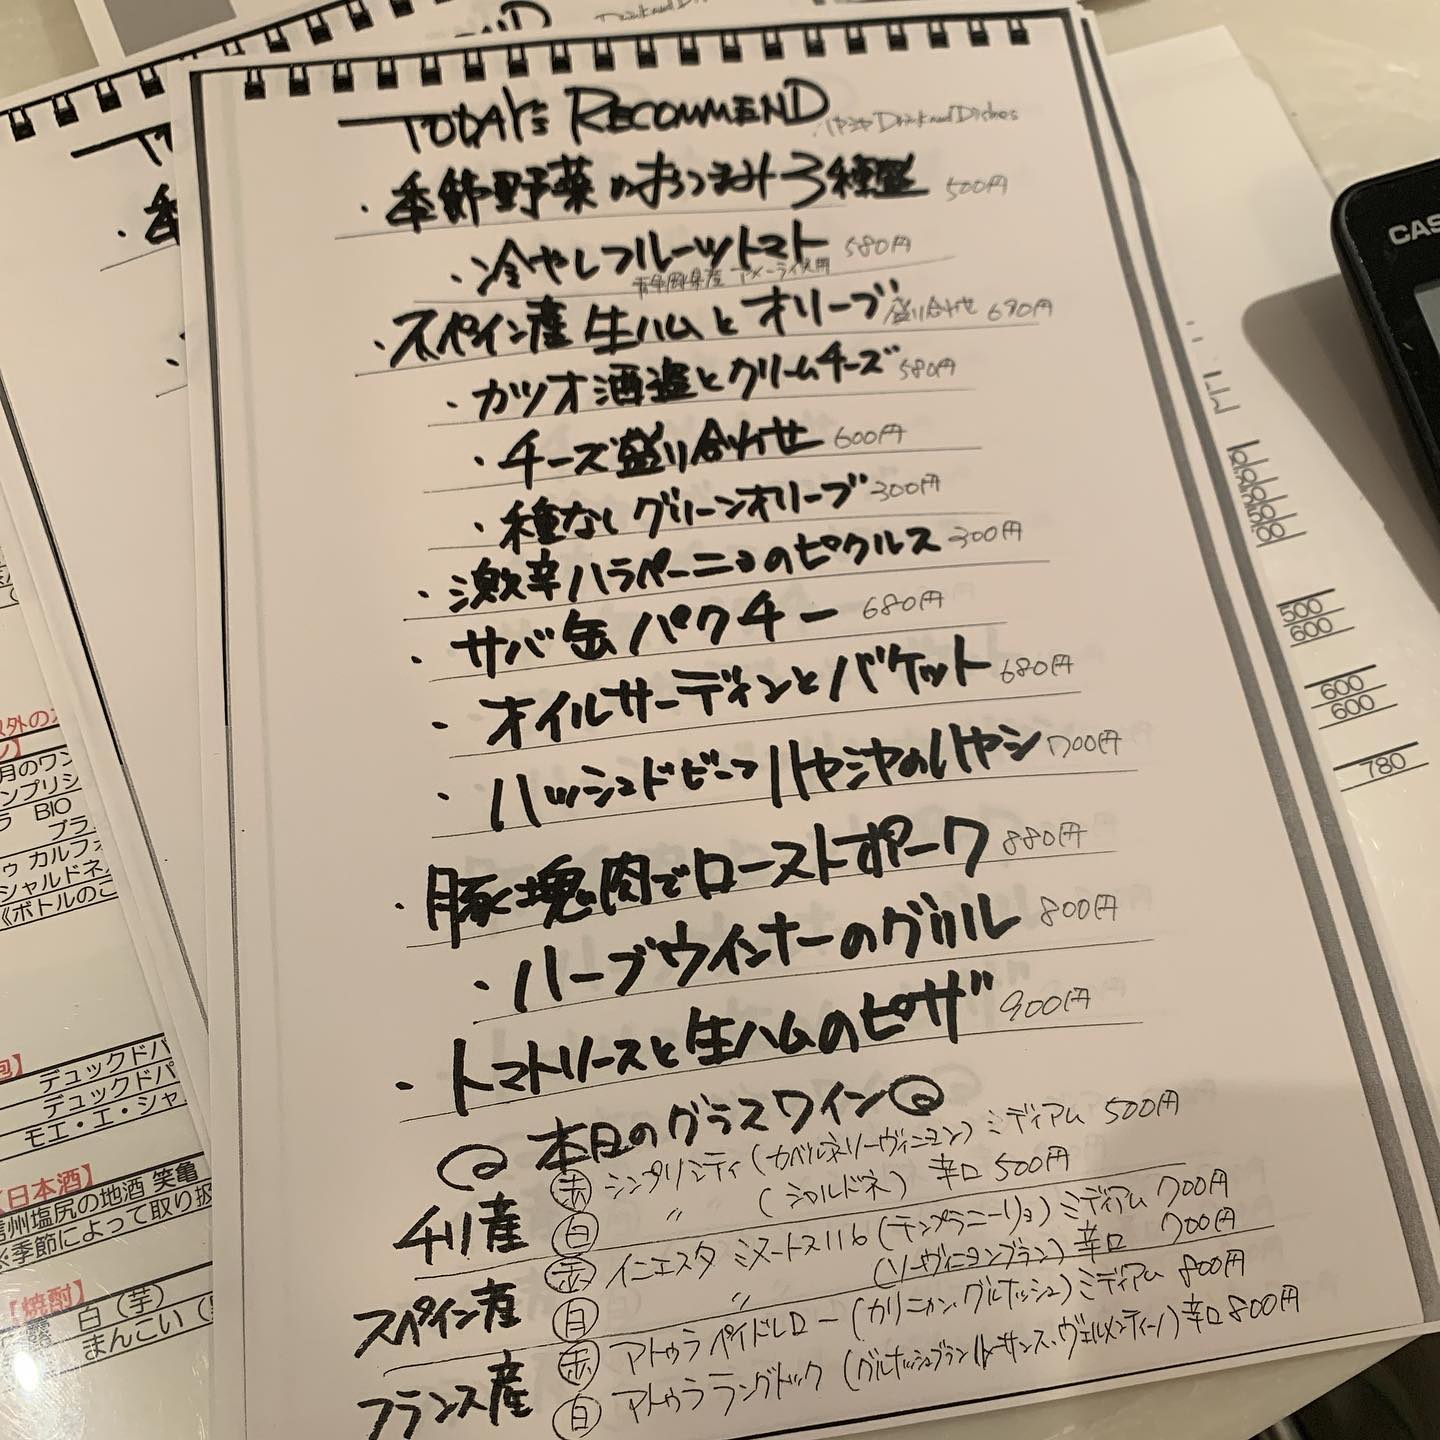 TODAY's RECOMMEND ハヤシヤ Drink and Dishes
・季節野菜のおつまみ3種盛 500円
・冷やしフルーツトマト 580円
静岡県産 アメーラ使用
・スペイン産 生ハムとオリーブ 盛り合わせ 680円
・カツオ酒盗とクリームチーズ 580円
・チーズ盛り合わせ 600円
・種なしグリーンオリーブ 300円
・激辛ハラペーニョのピクルス 300円
・サバ缶パクチー 680円
・オイルサーディンとバケット 680円
・ハッシュドビーフ ハヤシヤのハヤシ 700円
・豚塊肉でローストポーク 880円
・ハーブウインナーのグリル 800円
・トマトソースと生ハムのピザ 900円
本日のグラスワイン
チリ産 赤 シンプリシティ (カベルネソーヴィニヨン) ミディアム 500円
白 〃 (シャルドネ) 辛口 500円
スペイン産 赤 イニエスタ ミヌートス116 (テンプラニーリョ) ミディアム 700円
白 〃 (ソーヴィニヨンブラン) 辛口 700円
フランス産 赤 アトゥラ ペイドレロー (カリニャン、グルナッシュ) ミディアム 800円
白 アトゥラ ラングドック (グルナッシュブラン、ルーサンス、ヴェルメンティーノ) 辛口 800円
以外の
月のワン
ンプリシ
BIO
ブラ
ゥ カルフォ
シャルドネ
《ボトルのご
デュックドパ
デュックドパ
モエ・エ・シャ
【日本酒】
信州塩尻の地酒 笑亀
※季節によって取り扱
【焼酎】
白(芋)
まんこい(
CAS
500
600
600
600
780